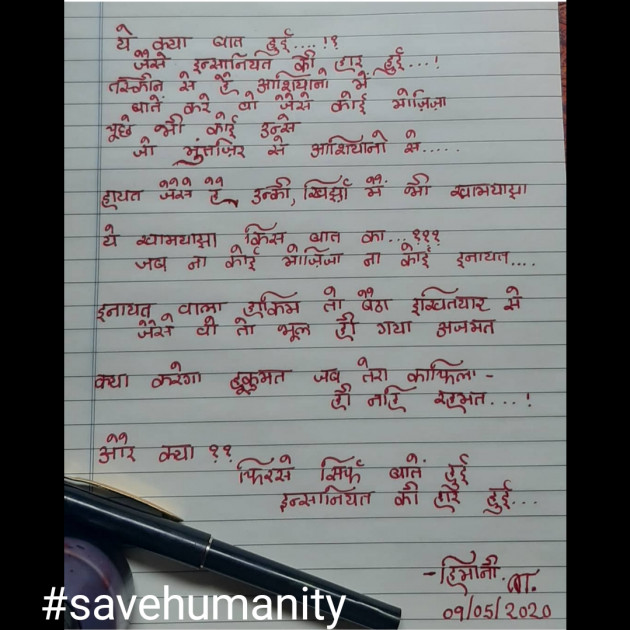 ये क्या बात हुई....!?
जैसे इन्सानियत की हार हुई...!
तस्कीन से है आशियानो में
बातें करे वो जैसे कोई मोज़िज़ा
पूछे भी कोई उन्से
जो मुंतज़िर से आशियानो से.....
हायत जैसे है उन्की, खिझाँ में भी खामयाझा
ये खामयाझा किस बात का...???
जब ना कोई मोज़िजा ना कोई इनायत....
इनायत वाला हाकिम तो बैठा इख्तियार से
जैसे वो तो भूल ही गया अजमत
क्या करेगा हूकुमत जब तेरा काफिला -
ही नहि रहमत...!
और क्या ??
फिरसे सिर्फ बातें हुई
इन्सानियत की हार हुई...
- हिमानी
09/05/2020
#savehumanity